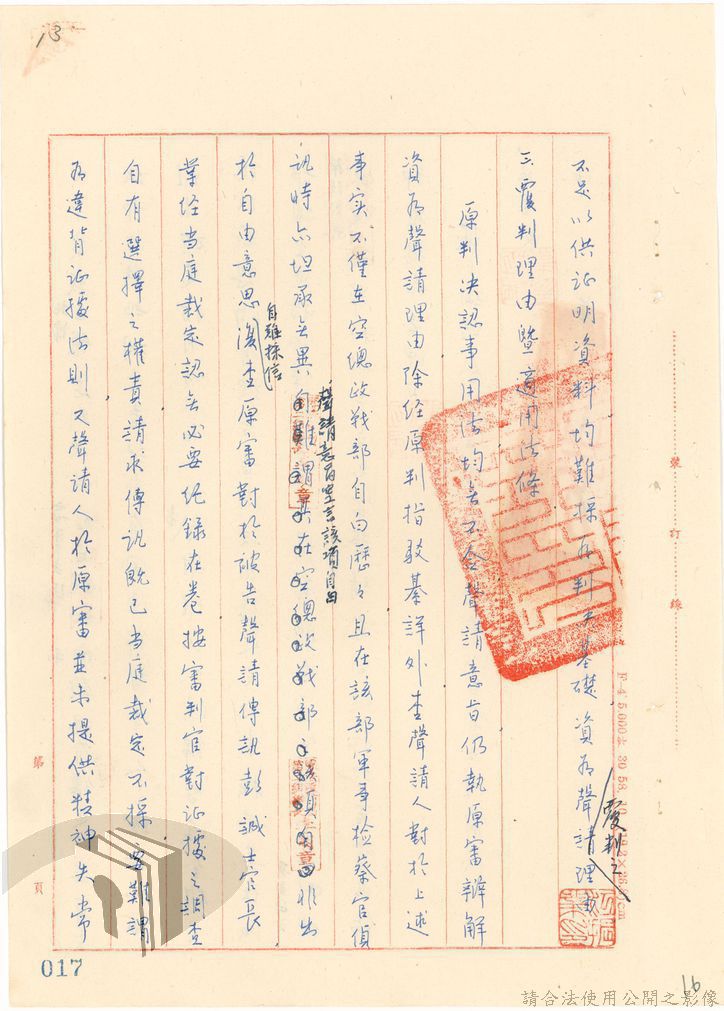 13
不足以供証明資料均難採為判決基礎資為聲請覆判之理由
三、覆判理由暨適用法條
原判決認事用法均無不合聲請意旨仍執原審辯解
資為聲請理由除經原判指駁綦詳外查聲請人對於上述
事实不僅在空總政戰部自白歷々且在該部軍事檢察官偵
訊時亦坦承無異聲請意旨空言該項自白非出
於自由意思自難採信復查原審對於被告聲請傳訊彭誠士官長
業经当庭裁定認無必要纪錄在卷按審判官對証據之調查
自有選擇之權責請求傳訊既已当庭裁定不採要難謂
為違背証據法則又聲請人於原審並未提供精神失常
裝 訂 線
第 頁
017
16
請合法使用公開之影像